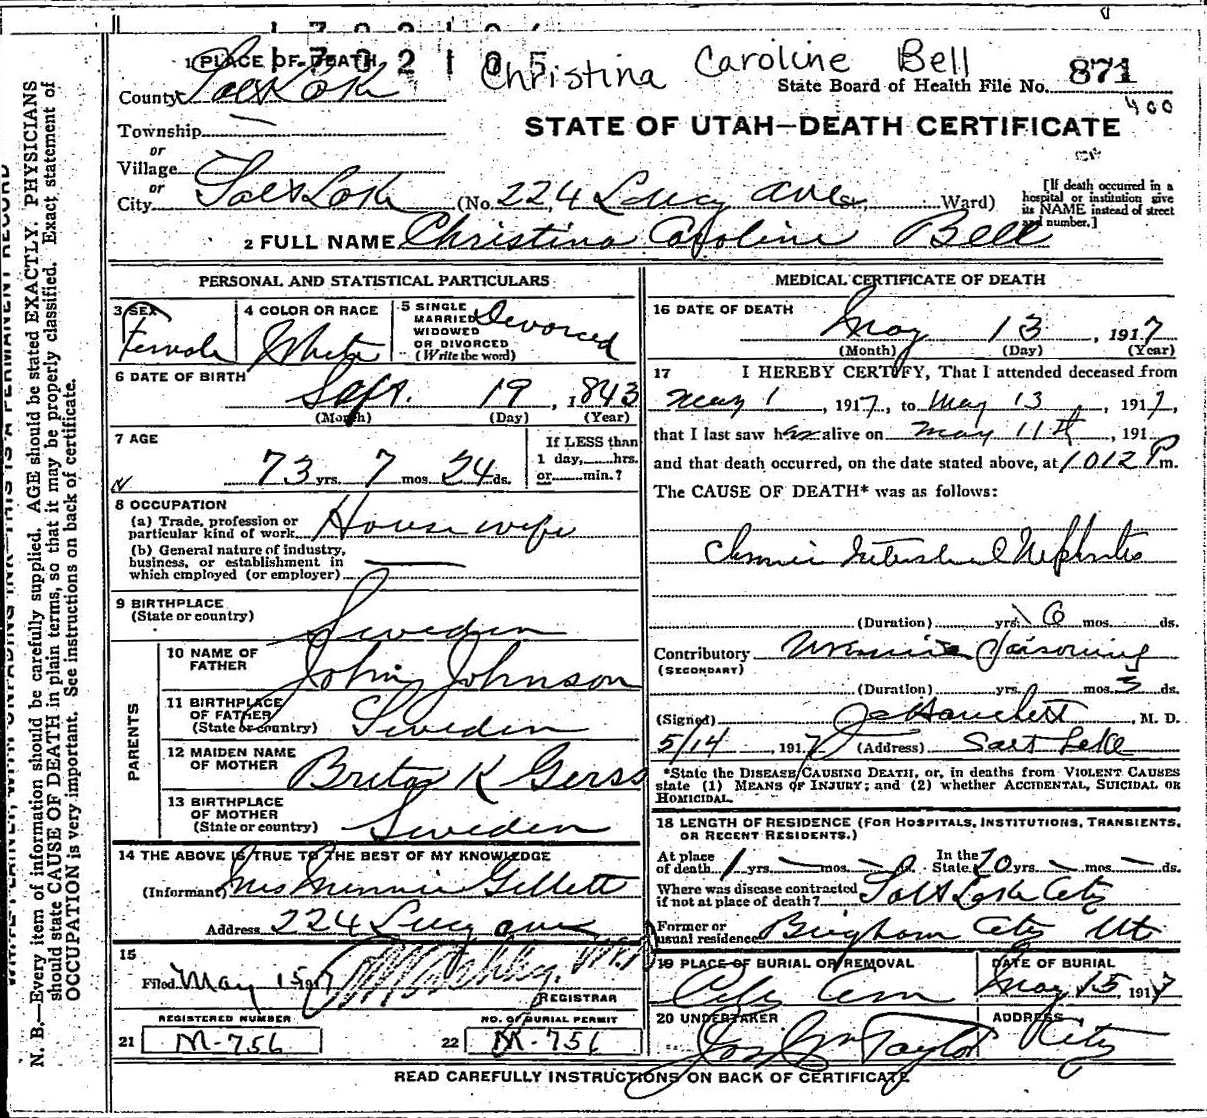 1702105
Christina Caroline Bell
1 PLACE OF DEATH
State Board of Health File No. 871
County Salt Lake
400
Township
STATE OF UTAH—DEATH CERTIFICATE
or
Village
or
City Salt Lake (No. 224 Lucy ave St., Ward)
[If death occurred in a hospital or institution give its NAME instead of street and number.]
2 FULL NAME Christina Caroline Bell
PERSONAL AND STATISTICAL PARTICULARS
3 SEX Female
4 COLOR OR RACE White
5 SINGLE MARRIED WIDOWED OR DIVORCED (Write the word) Divorced
6 DATE OF BIRTH Sept. 19, 1843
(Month) (Day) (Year)
7 AGE 73 yrs. 7 mos. 24 ds.
If LESS than 1 day, hrs. or min.?
8 OCCUPATION
(a) Trade, profession or particular kind of work House wife
(b) General nature of industry, business, or establishment in which employed (or employer)
9 BIRTHPLACE (State or country) Sweden
PARENTS
10 NAME OF FATHER John Johnson
11 BIRTHPLACE OF FATHER (State or country) Sweden
12 MAIDEN NAME OF MOTHER Brita K Gerss
13 BIRTHPLACE OF MOTHER (State or country) Sweden
14 THE ABOVE IS TRUE TO THE BEST OF MY KNOWLEDGE
(Informant) Mrs Minnie Gillett
Address 224 Lucy ave
15
Filed May 15 1917
REGISTRAR
REGISTERED NUMBER
NO. OF BURIAL PERMIT
21 M-756
22 M-756
MEDICAL CERTIFICATE OF DEATH
16 DATE OF DEATH
May 13, 1917
(Month) (Day) (Year)
17 I HEREBY CERTIFY, That I attended deceased from
May 1, 1917, to May 13, 1917,
that I last saw her alive on May 11th, 191
and that death occurred, on the date stated above, at 1012 P m.
The CAUSE OF DEATH* was as follows:
Chronic Interstitial Nephritis
(Duration) yrs. 6 mos. ds.
Contributory Uraemic Poisoning
(SECONDARY)
(Duration) yrs. mos. 3 ds.
(Signed) M. D.
5/14, 1917 (Address) Salt Lake
*State the DISEASE CAUSING DEATH, or, in deaths from VIOLENT CAUSES
state (1) MEANS OF INJURY; and (2) whether ACCIDENTAL, SUICIDAL OR
HOMICIDAL.
18 LENGTH OF RESIDENCE (FOR HOSPITALS, INSTITUTIONS, TRANSIENTS, OR RECENT RESIDENTS.)
At place of death 1 yrs. mos. ds. In the State 70 yrs. mos. ds.
Where was disease contracted if not at place of death? Salt Lake City
Former or usual residence Bingham City Ut
19 PLACE OF BURIAL OR REMOVAL City Cem
DATE OF BURIAL May 15, 1917
20 UNDERTAKER Jos Wm Taylor
ADDRESS City
READ CAREFULLY INSTRUCTIONS ON BACK OF CERTIFICATE
WRITE PLAINLY, WITH UNFADING INK—THIS IS A PERMANENT RECORD
N. B.—Every item of information should be carefully supplied. AGE should be stated EXACTLY. PHYSICIANS
should state CAUSE OF DEATH in plain terms, so that it may be properly classified. Exact statement of
OCCUPATION is very important. See instructions on back of certificate.